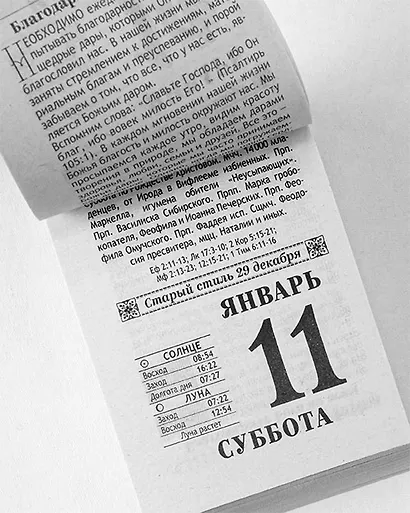 Благодар
НЕОБХОДИМО ежед
пытывать благодарнос
щедрые дары, которыми
благословил нас. В нашей жизни мы
заняты стремлением к достижениям, мат
риальным благам и преуспеванию, и порой
забываем о том, что все, что у нас есть, яв-
ляется Божьим даром.
Вспомним слова: «Славьте Господа, ибо Он
благ, ибо вовек милость Его!» (Псалтирь
105:1). В каждом мгновении нашей жизни
Божья благость и милость окружают нас. Мы
просыпаемся каждое утро, видим красоту
творения в природе, мы обладаем дарами
любви семьи и друзей. Все это –
часто принимаем
Рождестве Христовом. Мчч. 14000 мла-
денцев, от Ирода в Вифлееме избиенных. Прп.
Маркелла, игумена обители «Неусыпающих».
Прп. Василиска Сибирского. Прпп. Марка гробо-
копателя, Феофила и Иоанна Печерских. Прп. Фео-
фила Омучского. Прп. Фаддея исп. Сщмч. Феодо-
сия пресвитера, мцц. Наталии и иных.
Еф 2:11-13; Лк 17:3-10; 2 Кор 5:15-21;
Мф 2:13-23; 12:15-21; 1 Тим 6:11-16
Старый стиль 29 декабря
ЯНВАРЬ
11
СУББОТА
СОЛНЦЕ
Восход 08:54
Заход 16:22
Долгота дня 07:27
ЛУНА
Заход 07:22
Восход 12:54
Луна растет